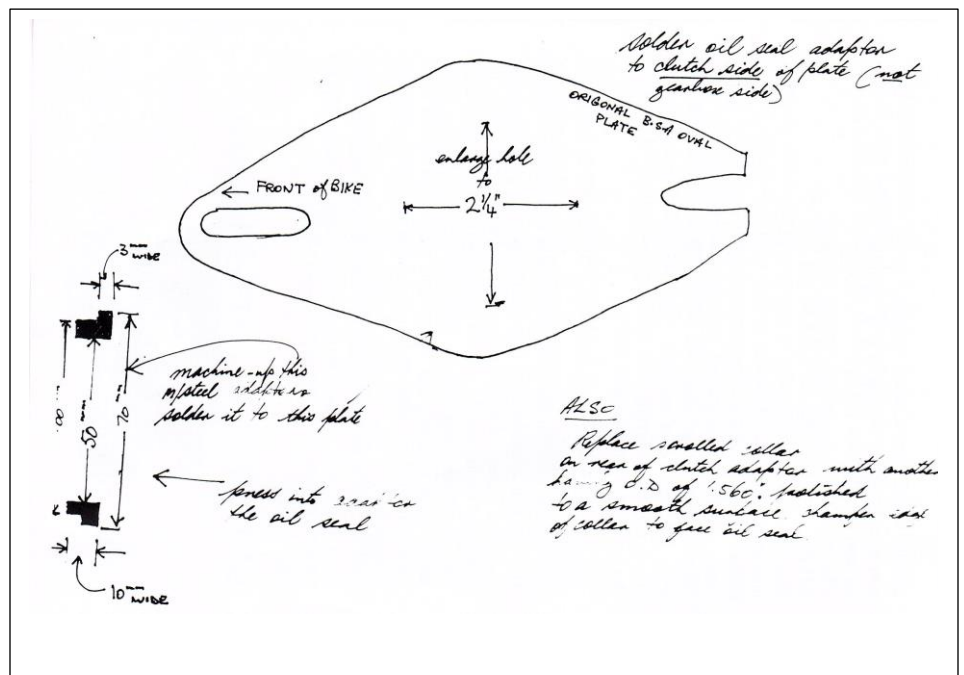 solder oil seal adaptor
to clutch side of plate (not
gearbox side)
ORIGONAL B.S.A OVAL
PLATE
enlarge hole
to
2¼"
← FRONT of BIKE
3mm WIDE
50mm
70mm
machine-up this
m/steel adaptor
solder it to this plate
press into
the oil seal
10mm WIDE
ALSO
Replace scrolled collar
on rear of clutch adaptor with another
having O.D of 1.560" polished
to a smooth surface. chamfer
of collar to face oil seal